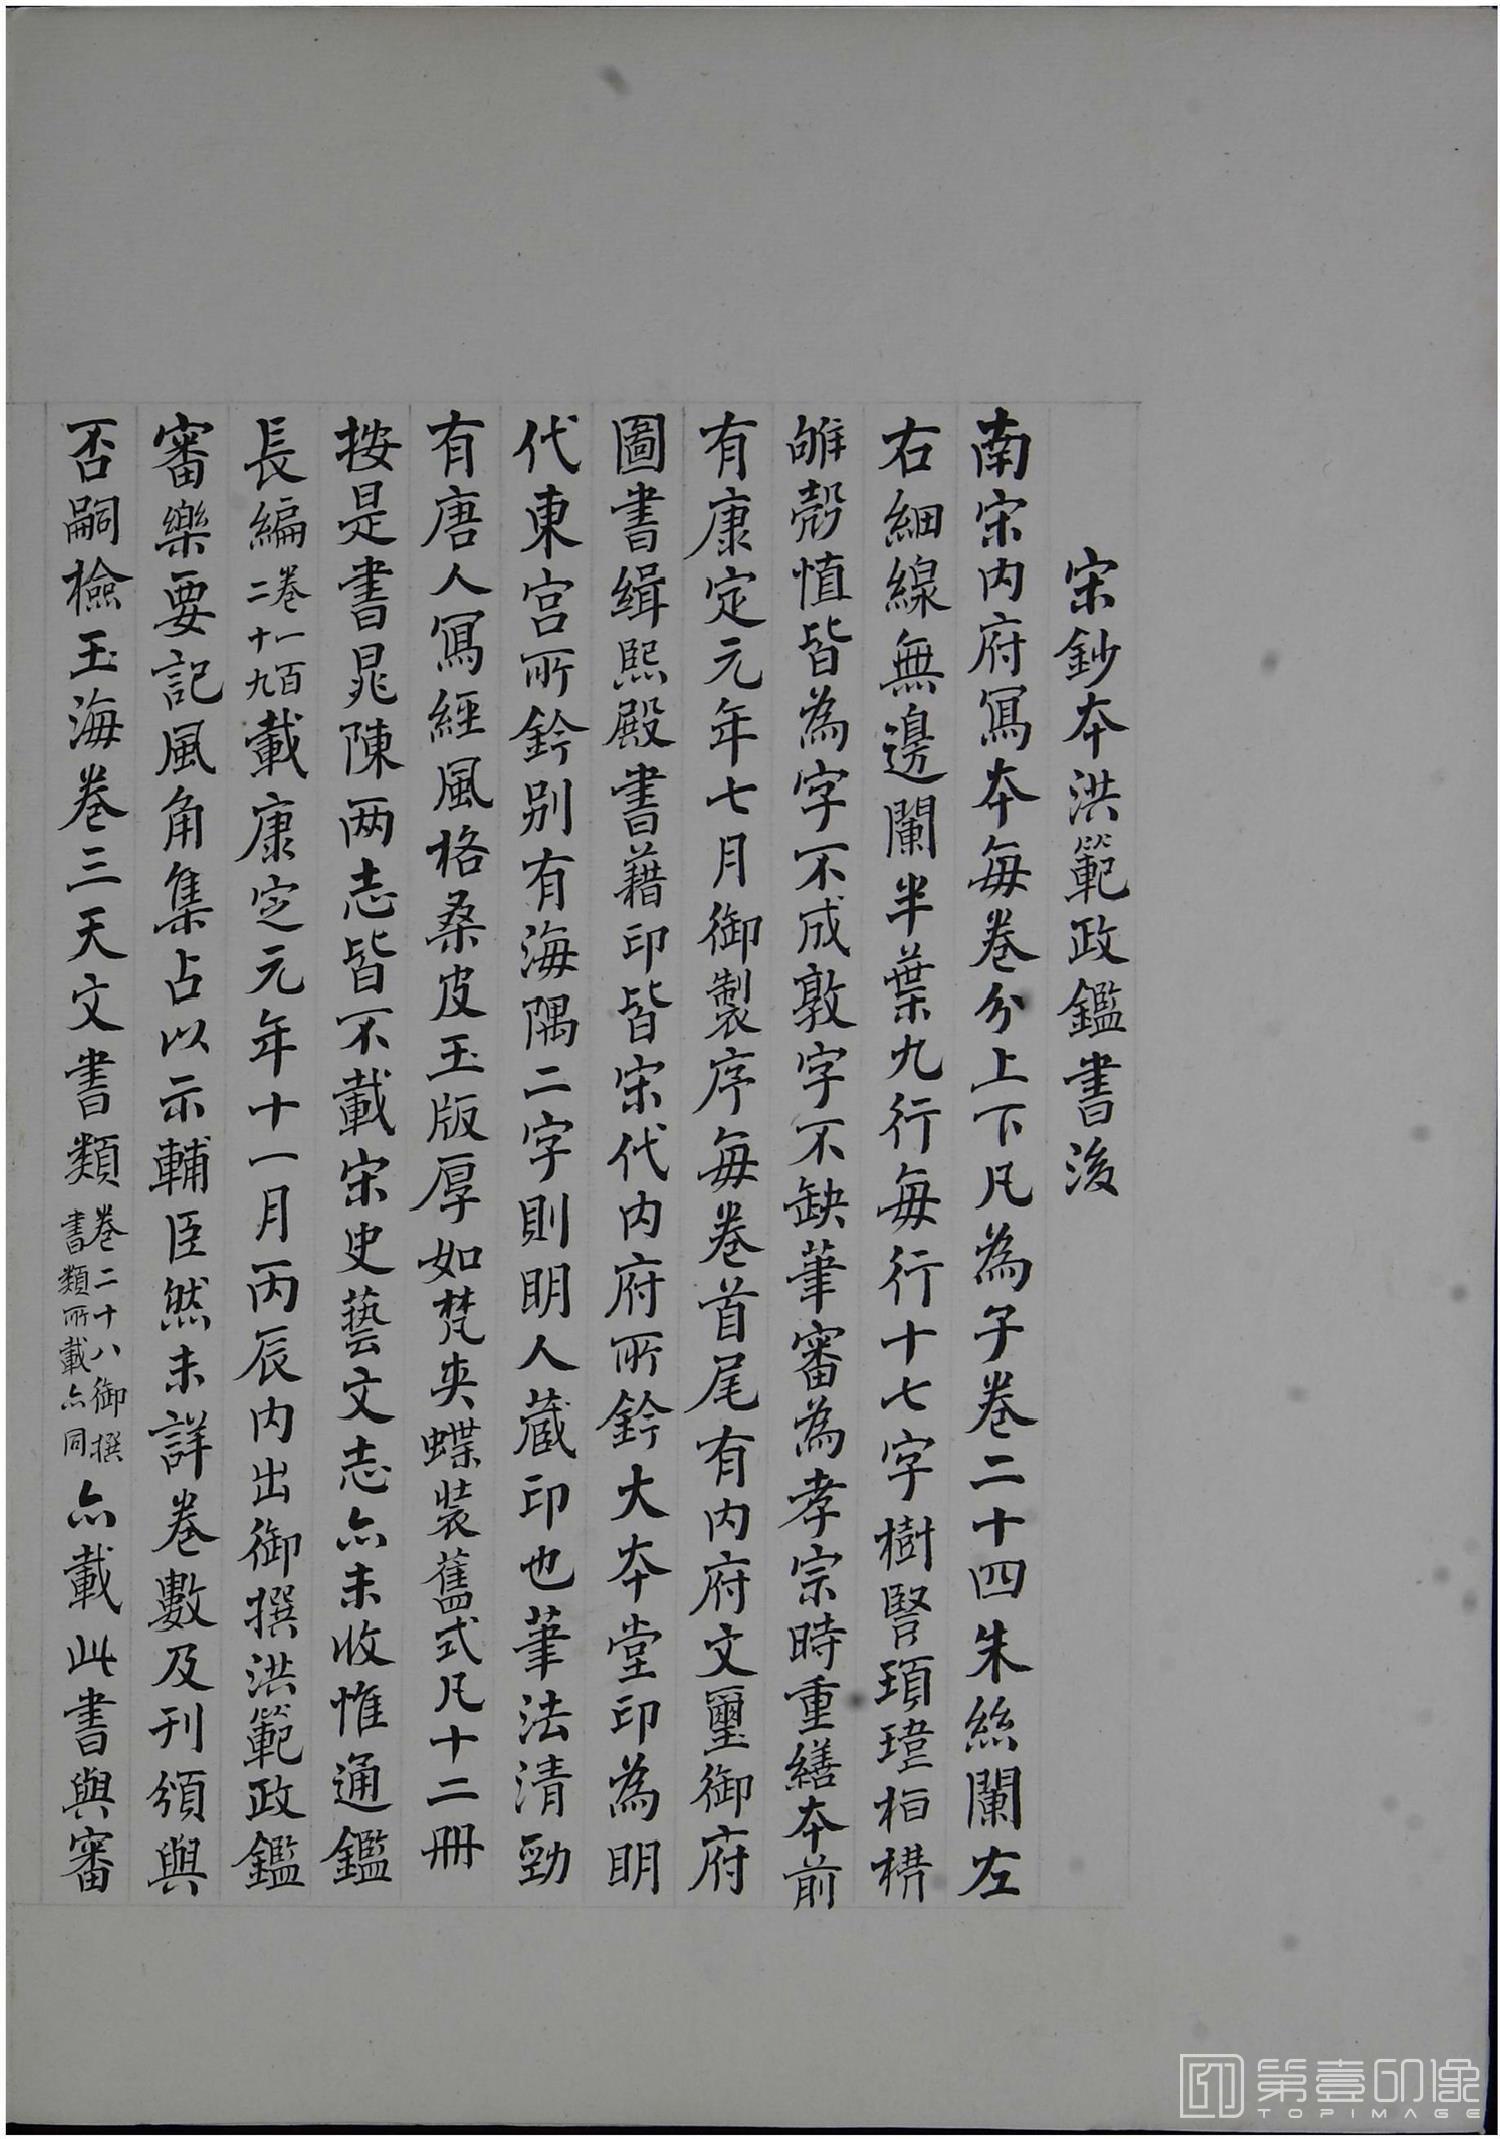 宋鈔本洪範政鑑書後
南宋內府寫本每卷分上下凡為子卷二十四朱絲闌左
右細線無邊闌半葉九行每行十七字樹豎頊瑋桓構
雊㲉慎皆為字不成敦字不缺筆審為孝宗時重繕本前
有康定元年七月御製序每卷首尾有內府文璽御府
圖書緝熙殿書籍印皆宋代內府所鈐大本堂印為明
代東宮所鈐別有海隅二字則明人藏印也筆法清勁
有唐人寫經風格桑皮玉版厚如梵夾蝶裝舊式凡十二冊
按是書晁陳兩志皆不載宋史藝文志亦未收惟通鑑
長編卷一百二十九載康定元年十一月丙辰內出御撰洪範政鑑
審樂要記風角集占以示輔臣然未詳卷數及刊頒與
否嗣檢玉海卷三天文書類卷二十八御撰書類所載亦同亦載此書與審
第壹印像
TOPIMAGE